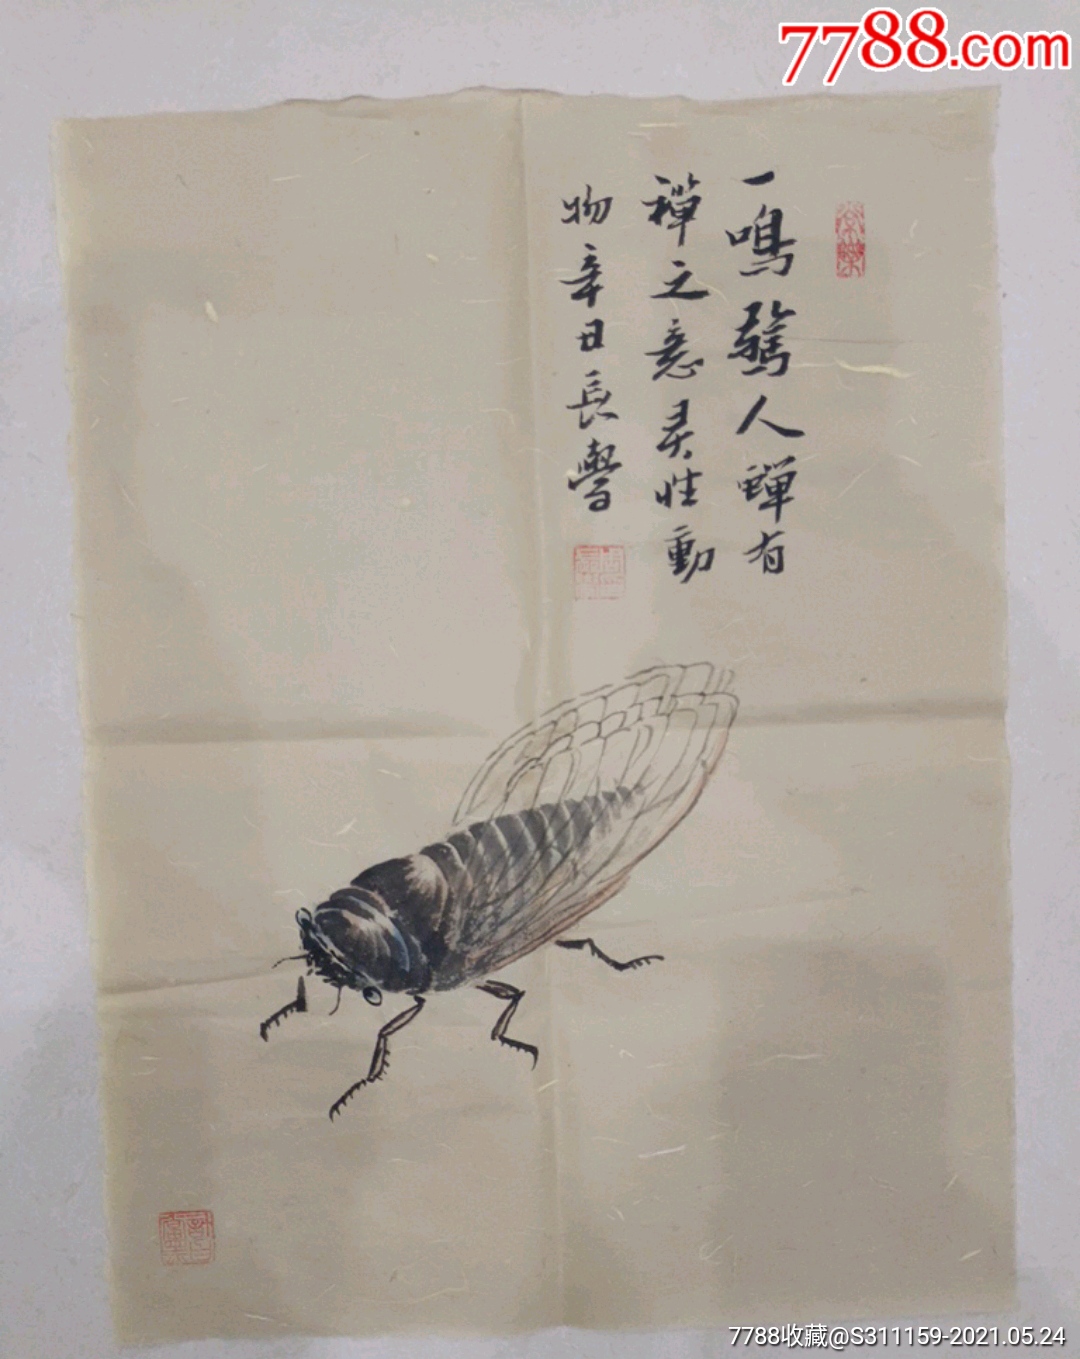 7788.com
一鳴驚人蟬有
禪之意灵性動
物辛丑長
7788收藏@S311159-2021.05.24